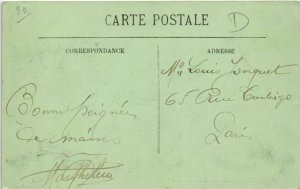 20
CARTE POSTALE
D
CORRESPONDANCE
ADRESSE
Bonne Poignée
de mains
Mr Louis Longuet
65 Rue Turbigo
Paris